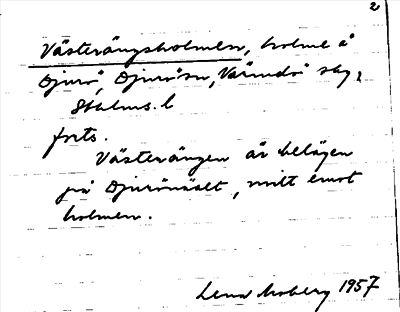 2
Västerängsholmen, holme å
Djurö, Djurö sn, Värmdö skg,
Sthlms. l
forts.
Västerängen är belägen
på Djurönäset, mitt emot
holmen.
Lena Moberg 1957